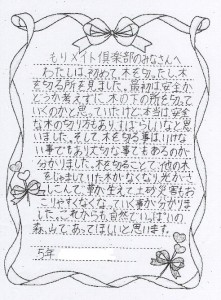 もりメイト倶楽部のみなさんへ
わたしは、初めて、木を切ったし、木
を切る所を見ました。最初は安全か
どうか考えずに、木の下の所を切って
いくのかと思っていたけど、本当は安全
な木の切り方もありすごいなと思
いました。そして、木を切る事は、いけな
い事でもあり大切な事でもあるのが
分かりました。木を切ることで、他の木
をじゃましていた木がなくなり光がさ
しこんで、草が生えて、土砂災害もお
こりやすくなくなっていく事が分かりま
した。これからも、自然でいっぱいの
森、山で、あってほしいと思います。
5年